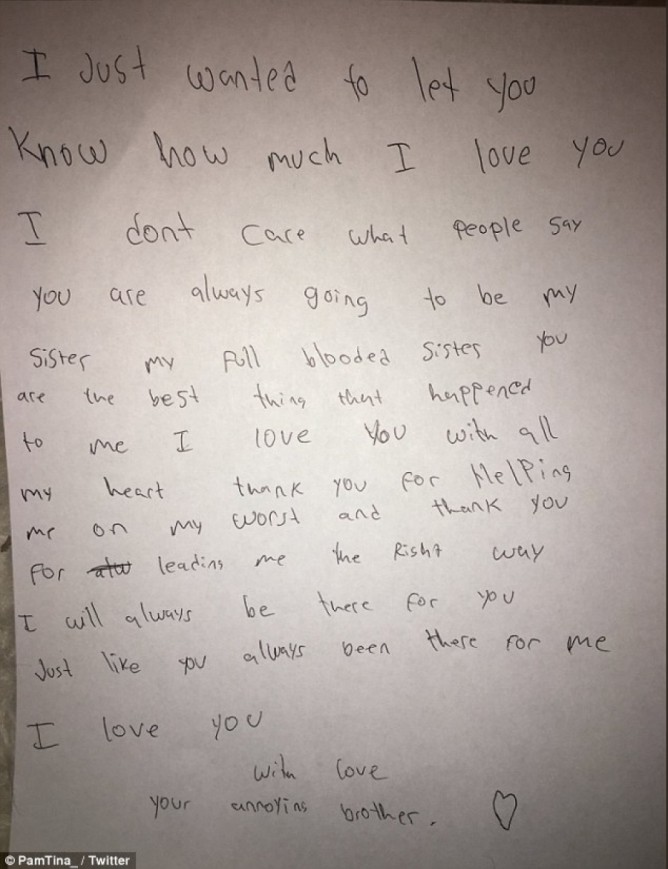 I Just wanted to let you
Know how much I love you
I dont care what people say
you are always going to be my
Sister my full blooded sister you
are the best thing that happened
to me I love you with all
my heart thank you for Helping
me on my worst and thank you
for leading me the Right way
I will always be there for you
Just like you always been there for me
I love you
with love
your annoying brother.
© PamTina_ / Twitter